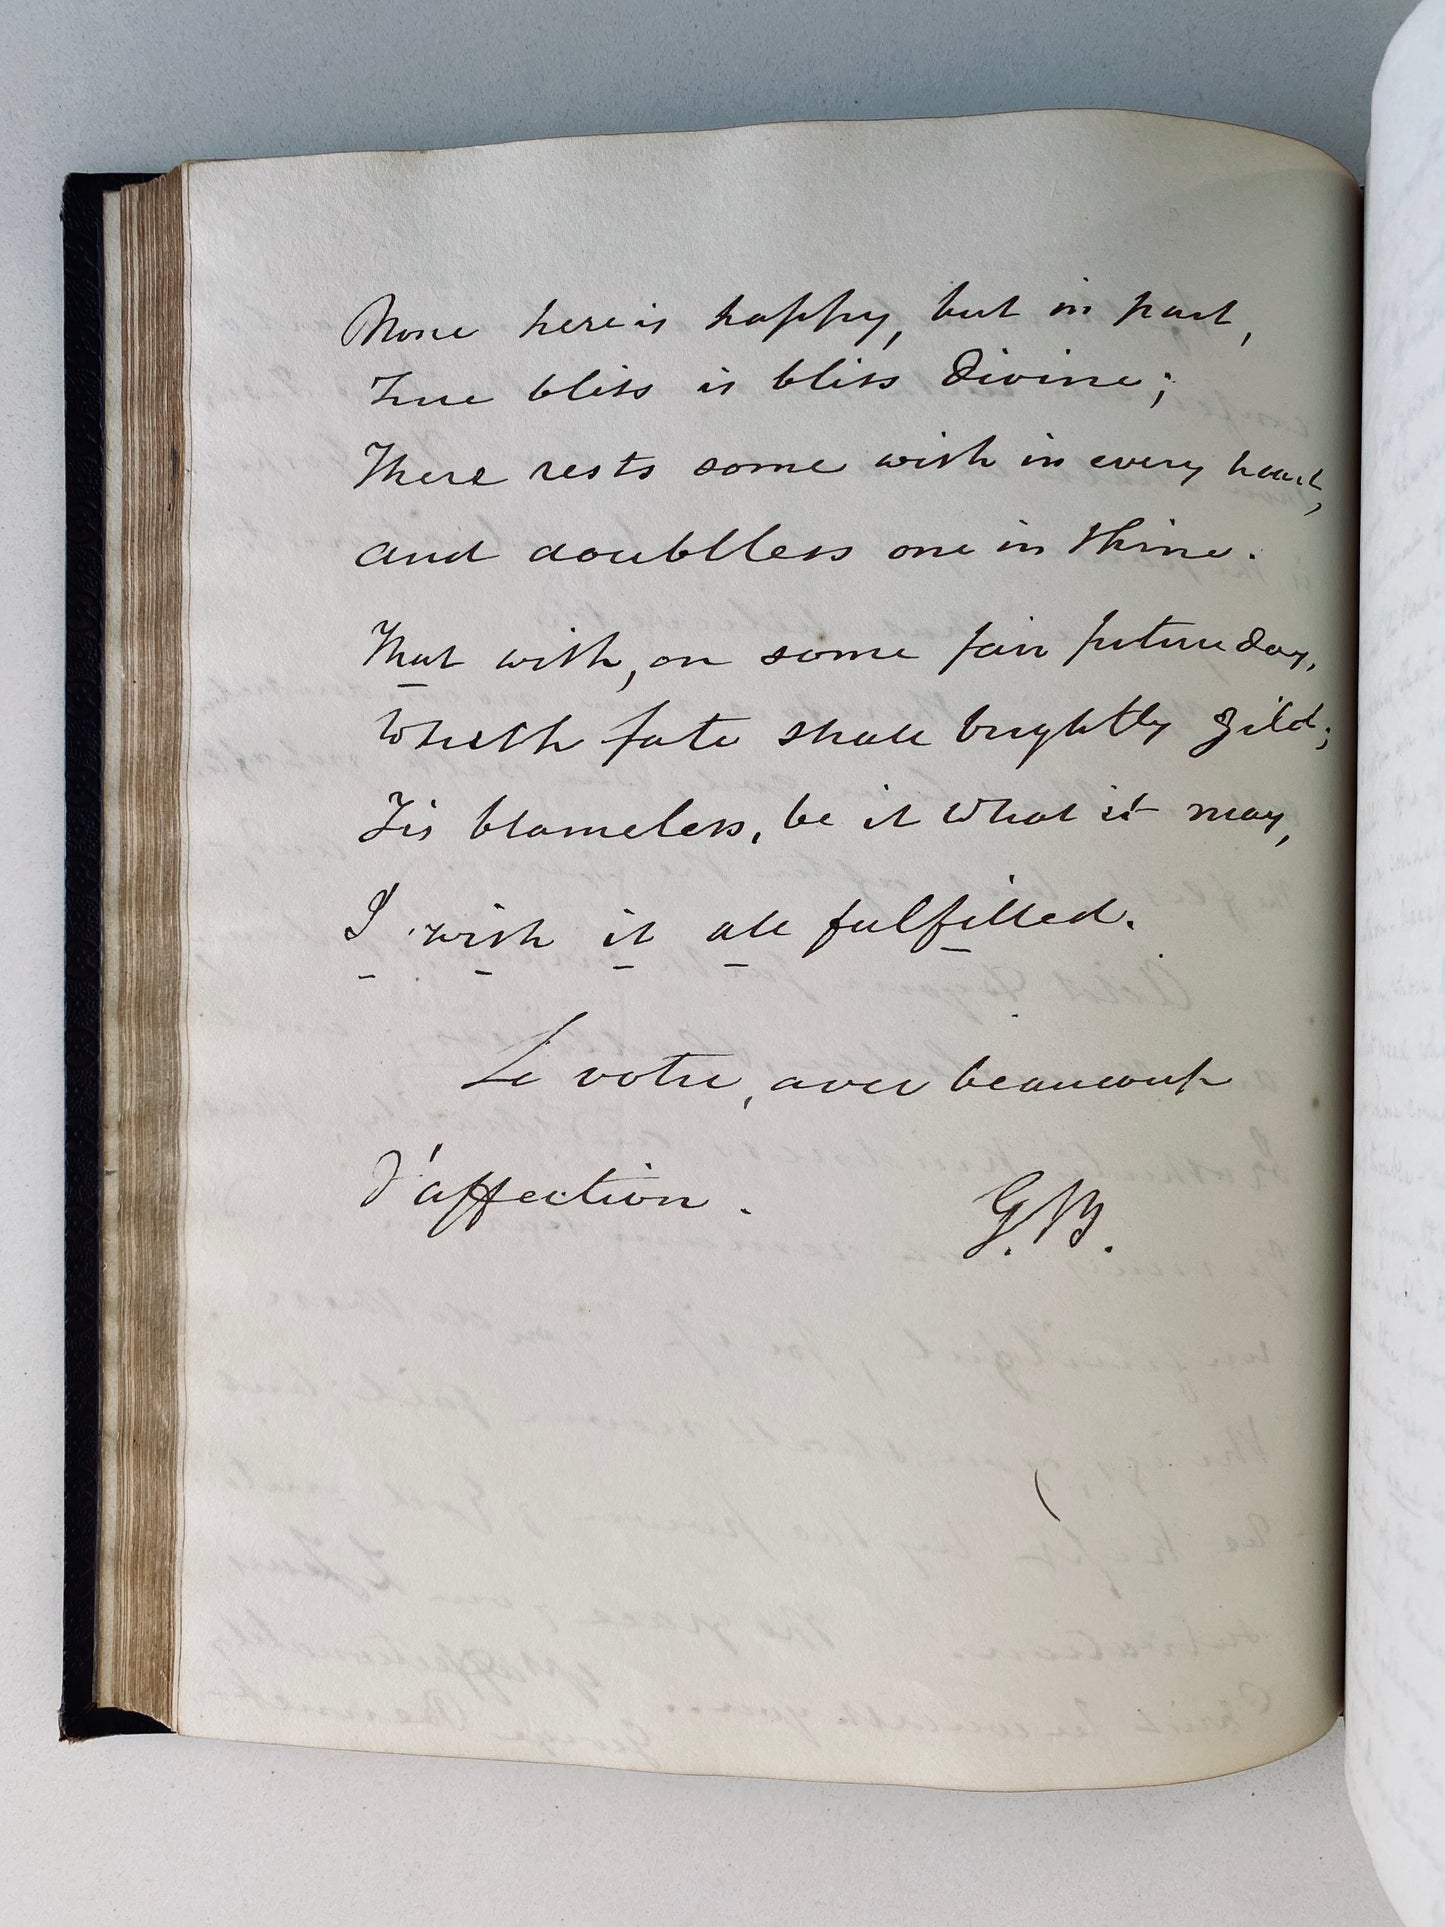 None here is happy, but in part,
True bliss is bliss divine;
There rests some wish in every heart,
and doubtless one in thine.
That wish, on some fair future day,
Which fate shall brightly gild;
Tis blameless, be it what it may,
I wish it all fulfilled.
Le votre, avec beaucoup
d'affection. G.B.